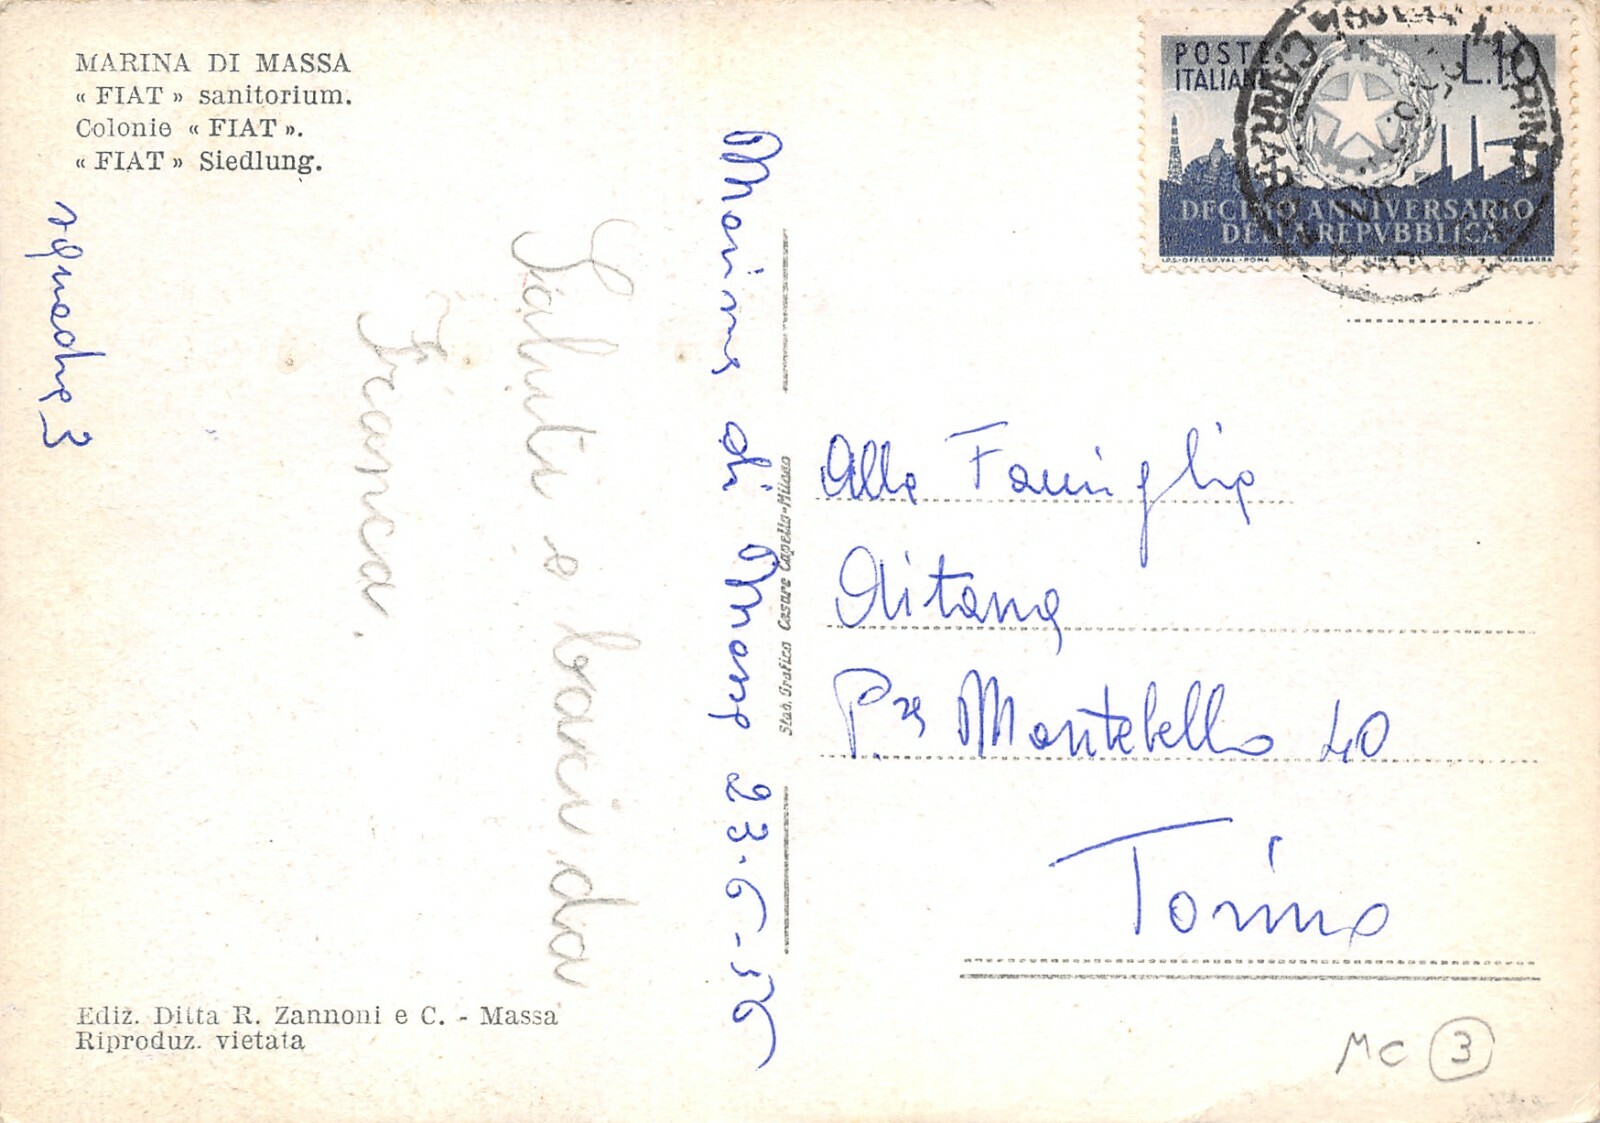 MARINA DI MASSA
« FIAT » sanitorium.
Colonie « FIAT ».
« FIAT » Siedlung.
squadra 3
Saluti e baci da
Franca.
Marina di Massa 23-6-56
Stab. Grafico Cesare Capello-Milano
POSTE
ITALIANE
L.10
DECIMO ANNIVERSARIO
DELLA REPVBBLICA
I.P.S.-OFF.CAR.VAL.-ROMA
Alla Famiglia
Aitana
P.za Montebello 40
Torino
Ediz. Ditta R. Zannoni e C. - Massa
Riproduz. vietata
MC 3